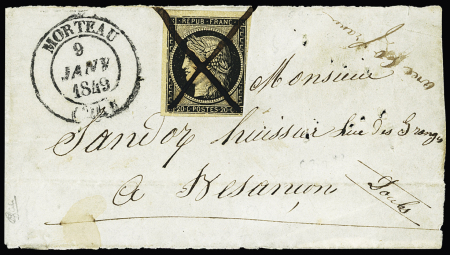 MORTEAU
9
JANV
1849
REPUB. FRANC.
20.C. POSTES 20.C.
Monsieur
Sandoz huissier Rue des Granges
A Besançon
Doubs